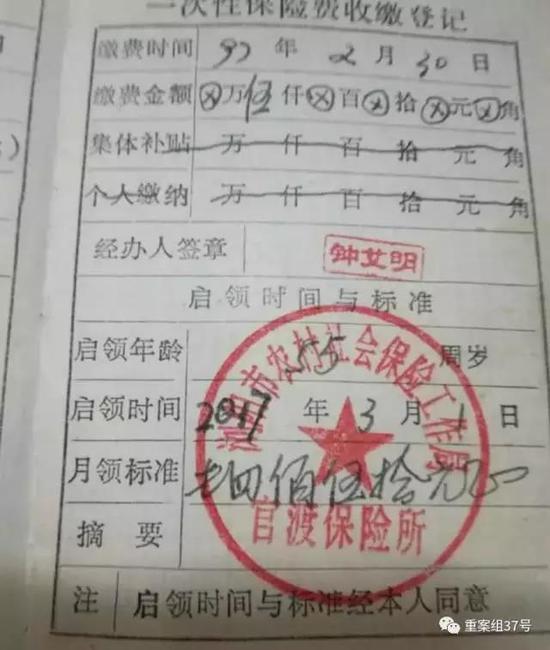 一次性保险费收缴登记
缴费时间 97 年 2 月 30 日
缴费金额 ⊗万伍仟⊗百⊗拾⊗元⊗角
集体补贴 万 仟 百 拾 元 角
个人缴纳 万 仟 百 拾 元 角
经办人签章 钟艾明
启领时间与标准
启领年龄 55 周岁
启领时间 2017 年 3 月 1 日
月领标准 四佰伍拾元正
摘要
浏阳市农村社会保险工作局
官渡保险所
注 启领时间与标准经本人同意
重案组37号